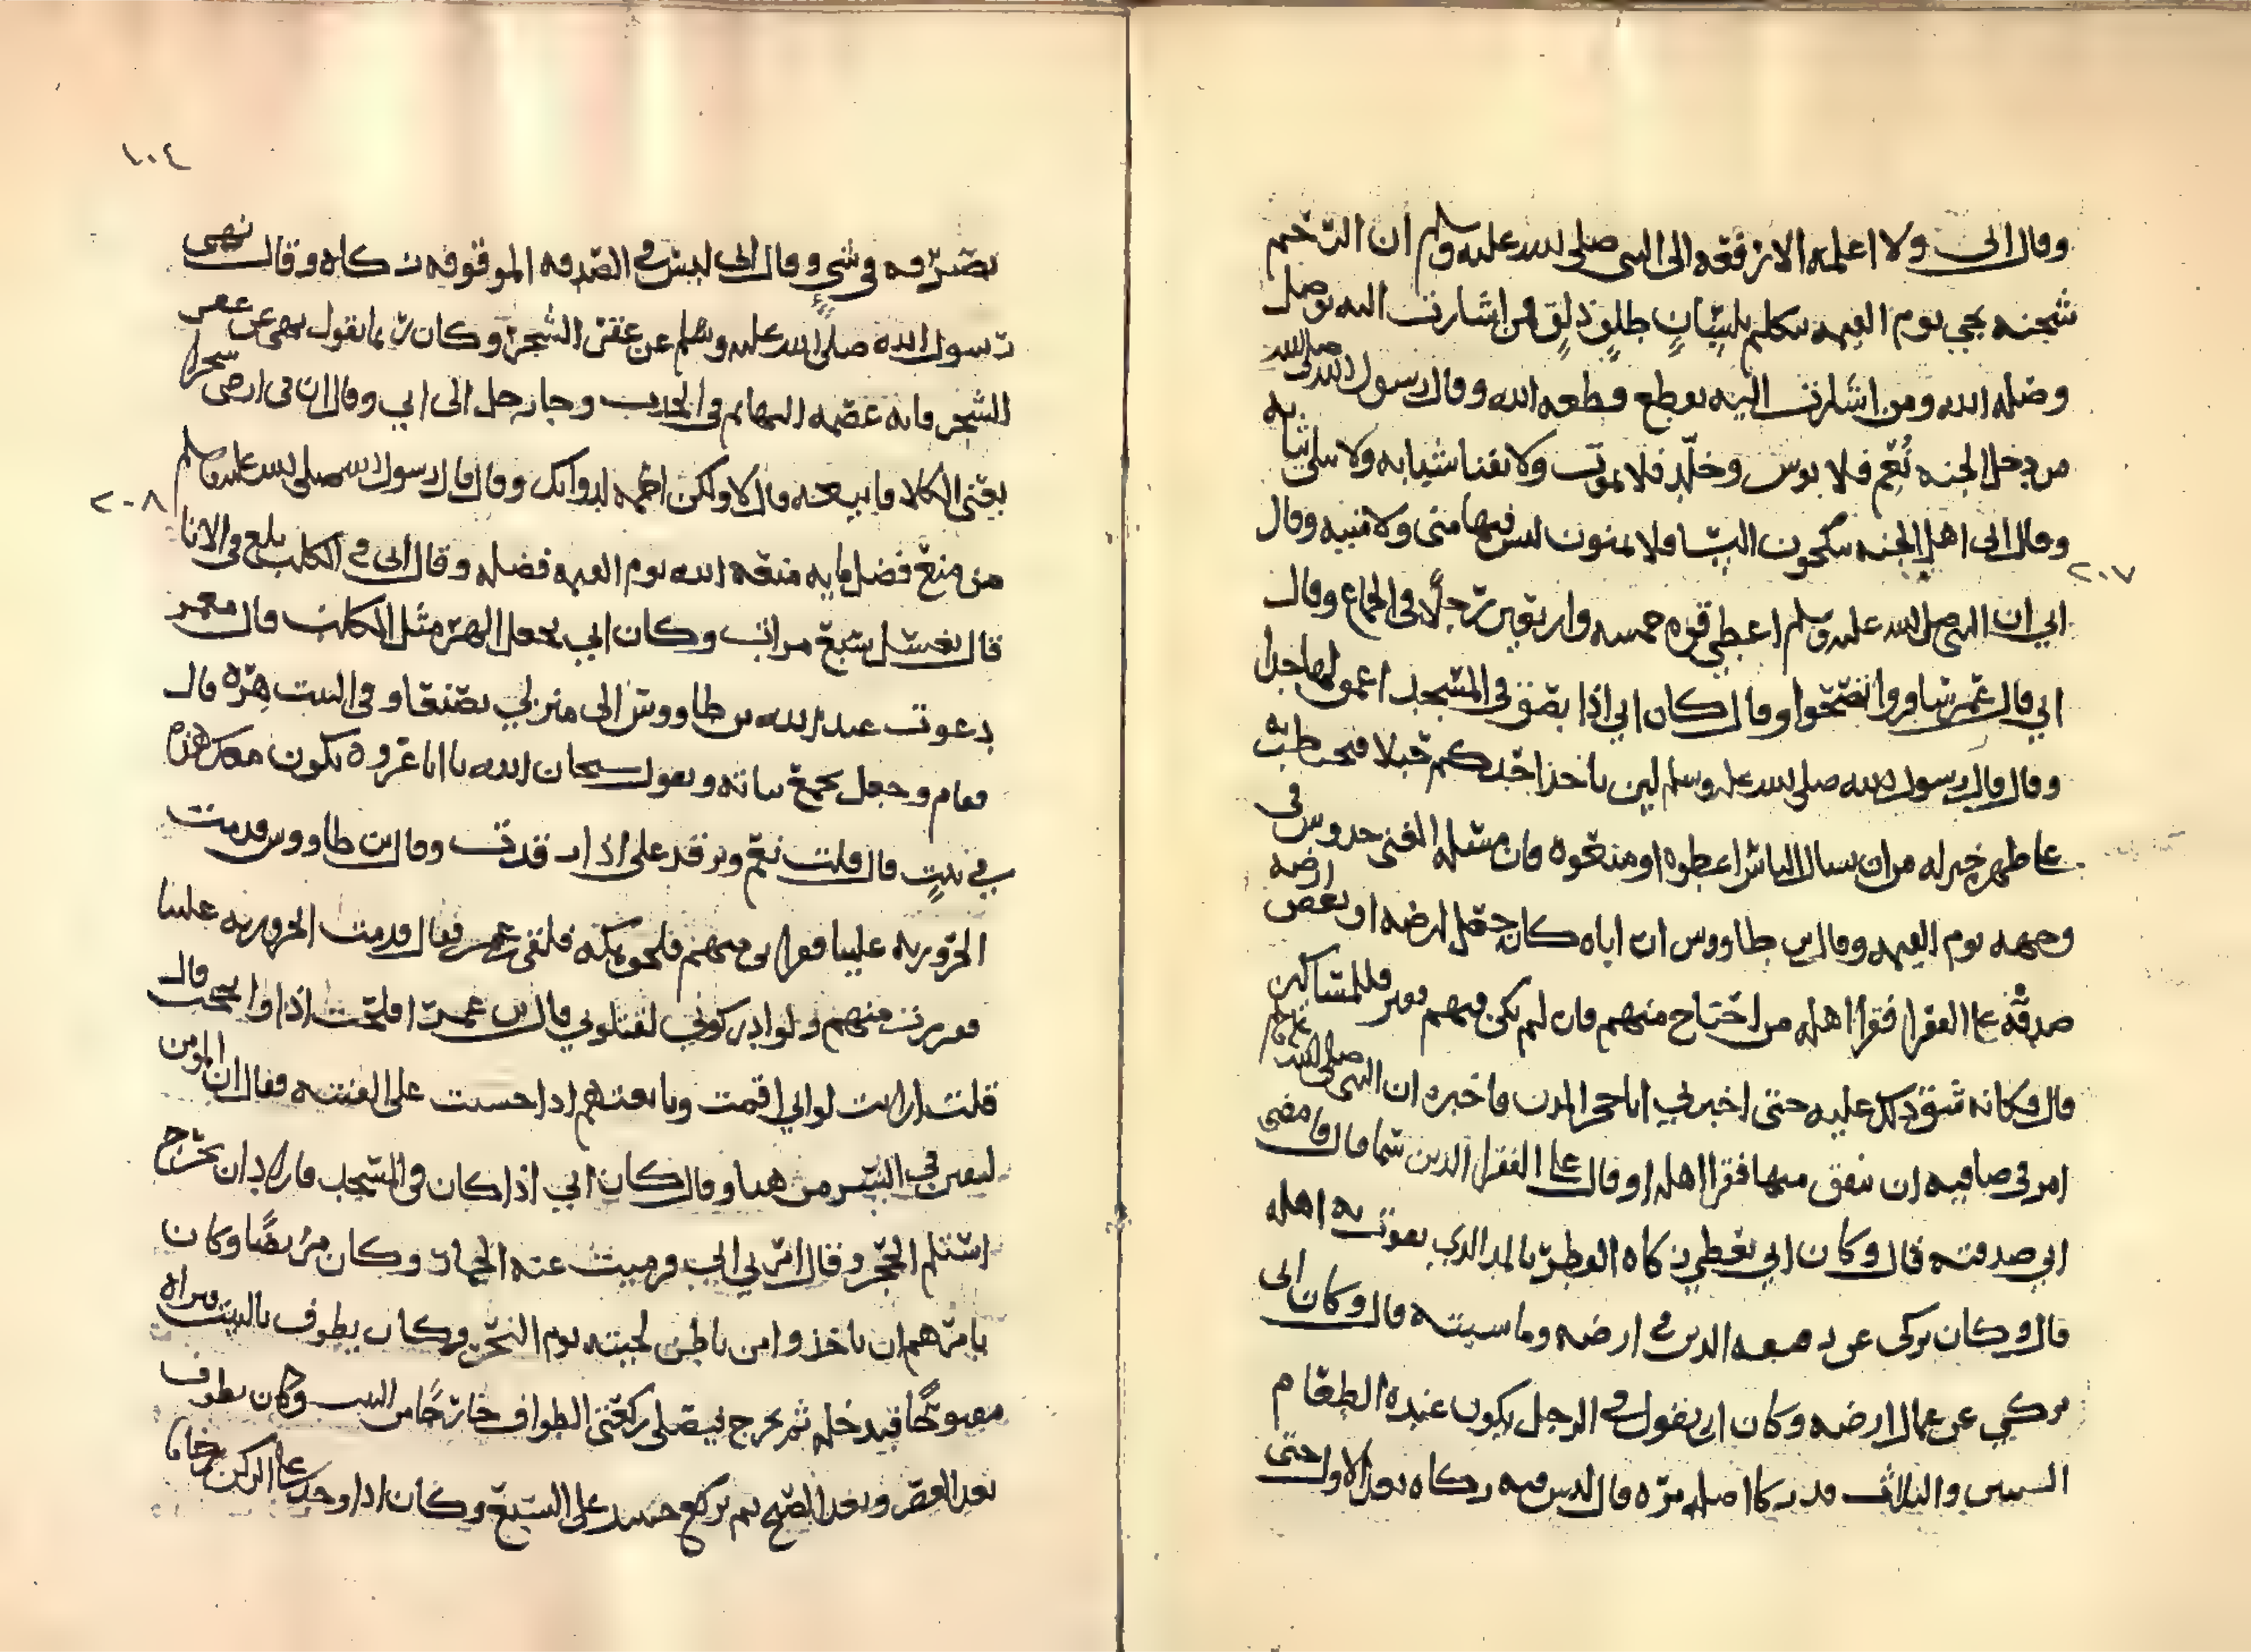 وقال ابي ولا اعلمه الا رفعه الى النبي صلى الله عليه وسلم ان الرحم
شجنه يجي يوم القيمه تتكلم بلسان طلق ذلق فمن اشارت اليه بوصل
وصله الله ومن اشارت اليه بقطع قطعه الله وقال رسول الله صلى الله
من دخل الجنه نعم فلا يوس وخلد فلا يموت ولا يفنا شبابه ولا تبلى ثيابه
وقال ابي اهل الجنه ينكحون النسا ولا يمنون ليس فيها مني ولا منيه وقال
٢٠٧
ابي ان النبي صلى الله عليه وسلم اعطي قوه خمسه واربعين رجلا في الجماع وقال
ابي قال عمر سافروا تصحوا وقال كان ابي اذا بصق في المسجد اعمق لها جدا
وقال قال رسول الله صلى الله عليه وسلم لين ياخذ احدكم حبلا فيحتطب به
على ظهره خير له من ان يسال الناس اعطوه او منعوه فان مسله الغني خدوش في
وجهه يوم القيمه وقال بن طاووس ان اباه كان جعل ارضه او بعض ارضه
صدقه على الفقرا فقرا اهله من احتاج منهم فان لم يكن فيهم فقير فللمساكين
قال فكانه شق ذلك عليه حتى اخبرني اباحجر المدري فاخبره ان النبي صلى الله عليه وسلم
امر في صافيه ان ينفق منها فقرا اهله او قال على الفقرا الذين سما قال فامضى
ابي صدقته قال وكان ابي يعطي زكاه الفطر بالمد الذي يقوت به اهله
قال وكان يزكي عن رقيقه الذين في ارضه وماشيته قال وكان ابي
يزكي عن عمال ارضه وكان ابي يقول في الرجل يكون عنده الطعام
السنين والثلاث قد زكا اصله مره قال ليس فيه زكاه بعد الاول حتى
١٠٤
يصرفه في شي وقال ابي ليس في الصدقه الموقوفه زكاه وقال نهى
رسول الله صلى الله عليه وسلم عن عقر الشجر وكان ربما يقول نهى عن عقر
الشجر فانه عصمه البهايم في الجدب وجا رجل الى ابي وقال ان في ارضي شجرا
يعني الكلا فابيعه قال لا ولكن احمه لدوابك وقال قال رسول الله صلى الله عليه وسلم
٢٠٨
من منع فضل مايه منعه الله يوم القيمه فضله وقال ابي في الكلب يلغ في الانا
قال يغسل سبع مرات وكان ابي يجعل الهر مثل الكلب قال معمر
دعوت عبد الله بن طاووس الى منزلي يصنعا وفي البيت هره قال
فقام وجعل يجمع ثيابه ويقول سبحان الله يا ابا عروه يكون معك هذه
في بيت قال قلت نعم وترقد على ازارى قد رقت وقال بن طاووس قدمت
الحروريه علينا ففر ابي منهم فلحق بمكه فلقي بن عمر فقال قدمت الحروريه علينا
ففررت منهم ولو ادركوني لقتلوني قال بن عمر افلحت اذا وانجحت قال
قلت ارايت لو اني اقمت وبايعتهم اذا خشيت على الفتنه فقال ان المومن
ليفتن في ايسر من هذا وقال كان ابي اذا كان في المسجد فاراد ان يخرج
استلم الحجر وقال امرني ابي فرميت عنه الجمار وكان مريضا وكان
يامرهم ان ياخذوا من باطن لحيته يوم النحر وكان يطوف بالبيت فيراه
مفتوحا فيدخله ثم يخرج فيصلي ركعتي الطواف خارجا من البيت وكان يطوف
بعد العصر وبعد الصبح ثم يركع حينيذ على السبع وكان اذا وجد على الركن زحاما